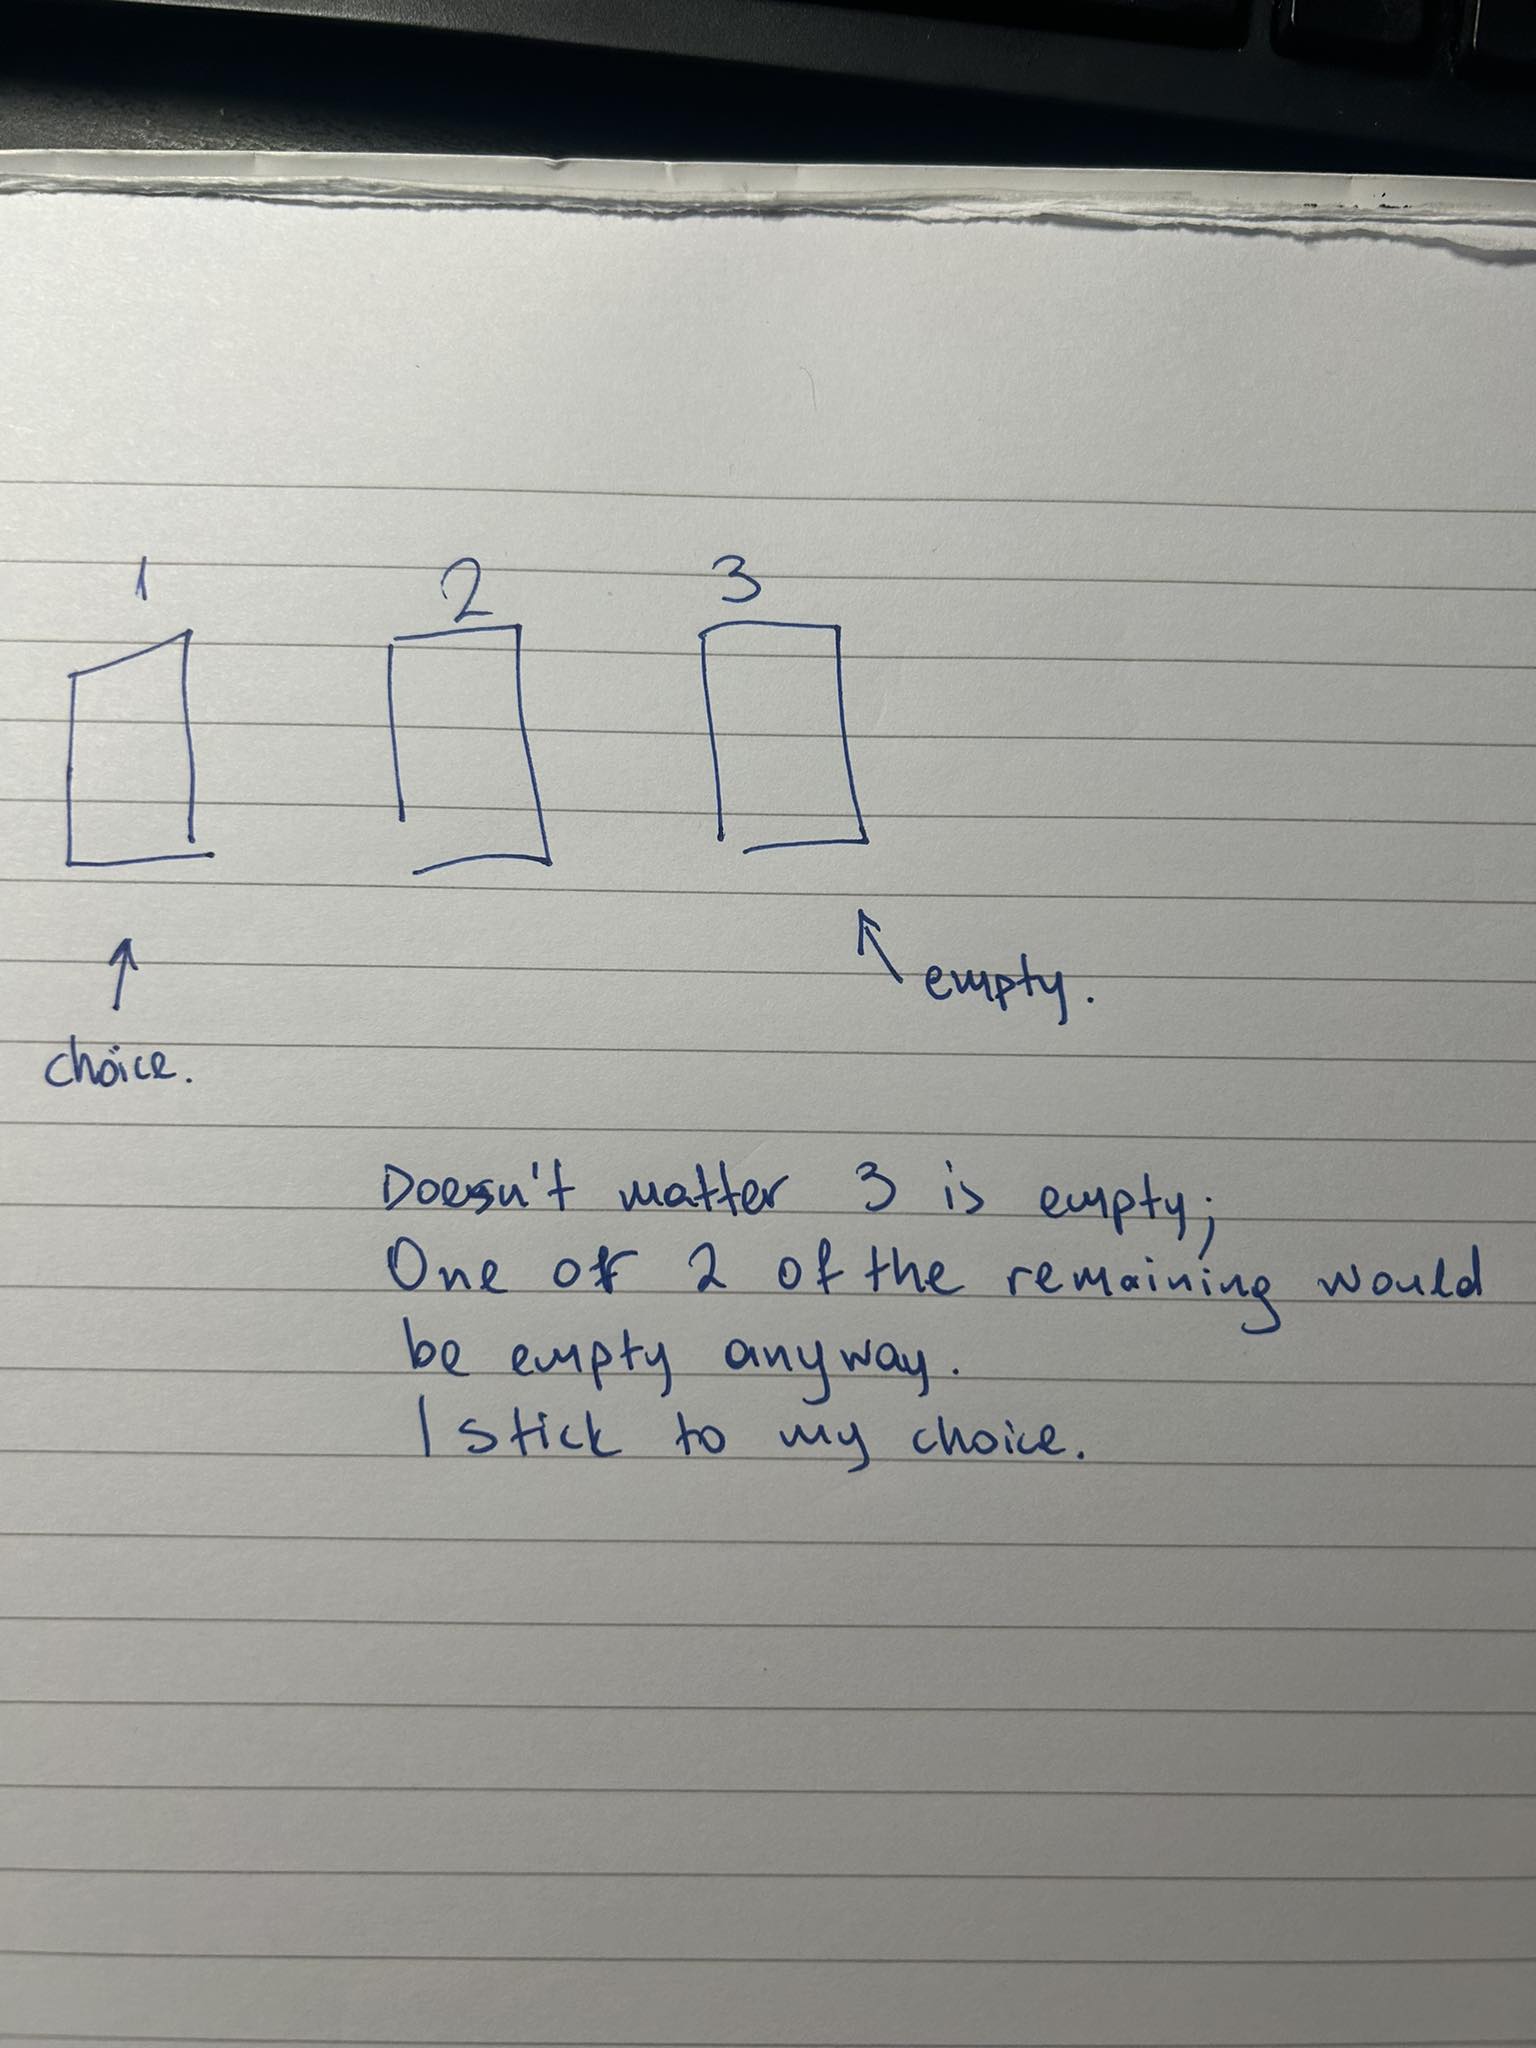 1 2 3
empty.
choice.
Doesn't matter 3 is empty;
One of 2 of the remaining would
be empty anyway.
I stick to my choice.